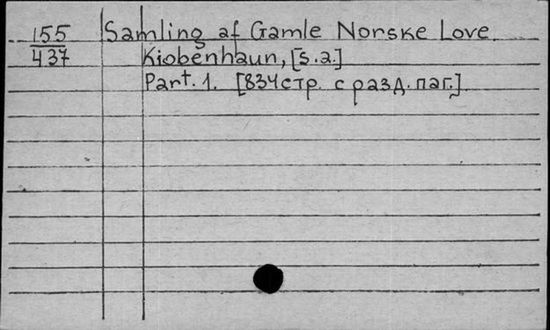 155 Samling af Gamle Norske Love.
437 Kiobenhaun, [s.a.]
Part. 1. [834 стр. с разд. паг.]